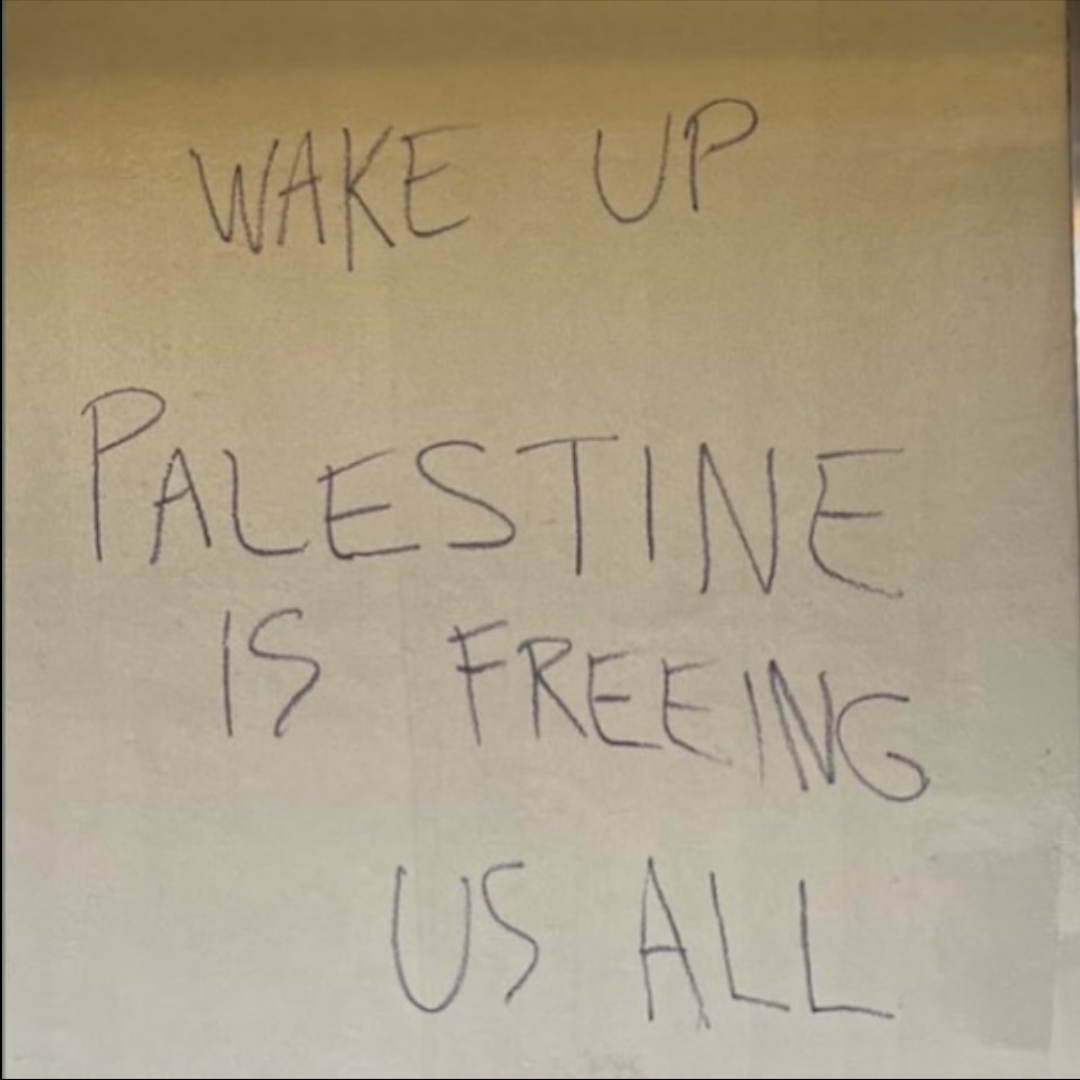 WAKE UP
PALESTINE
IS FREEING
US ALL